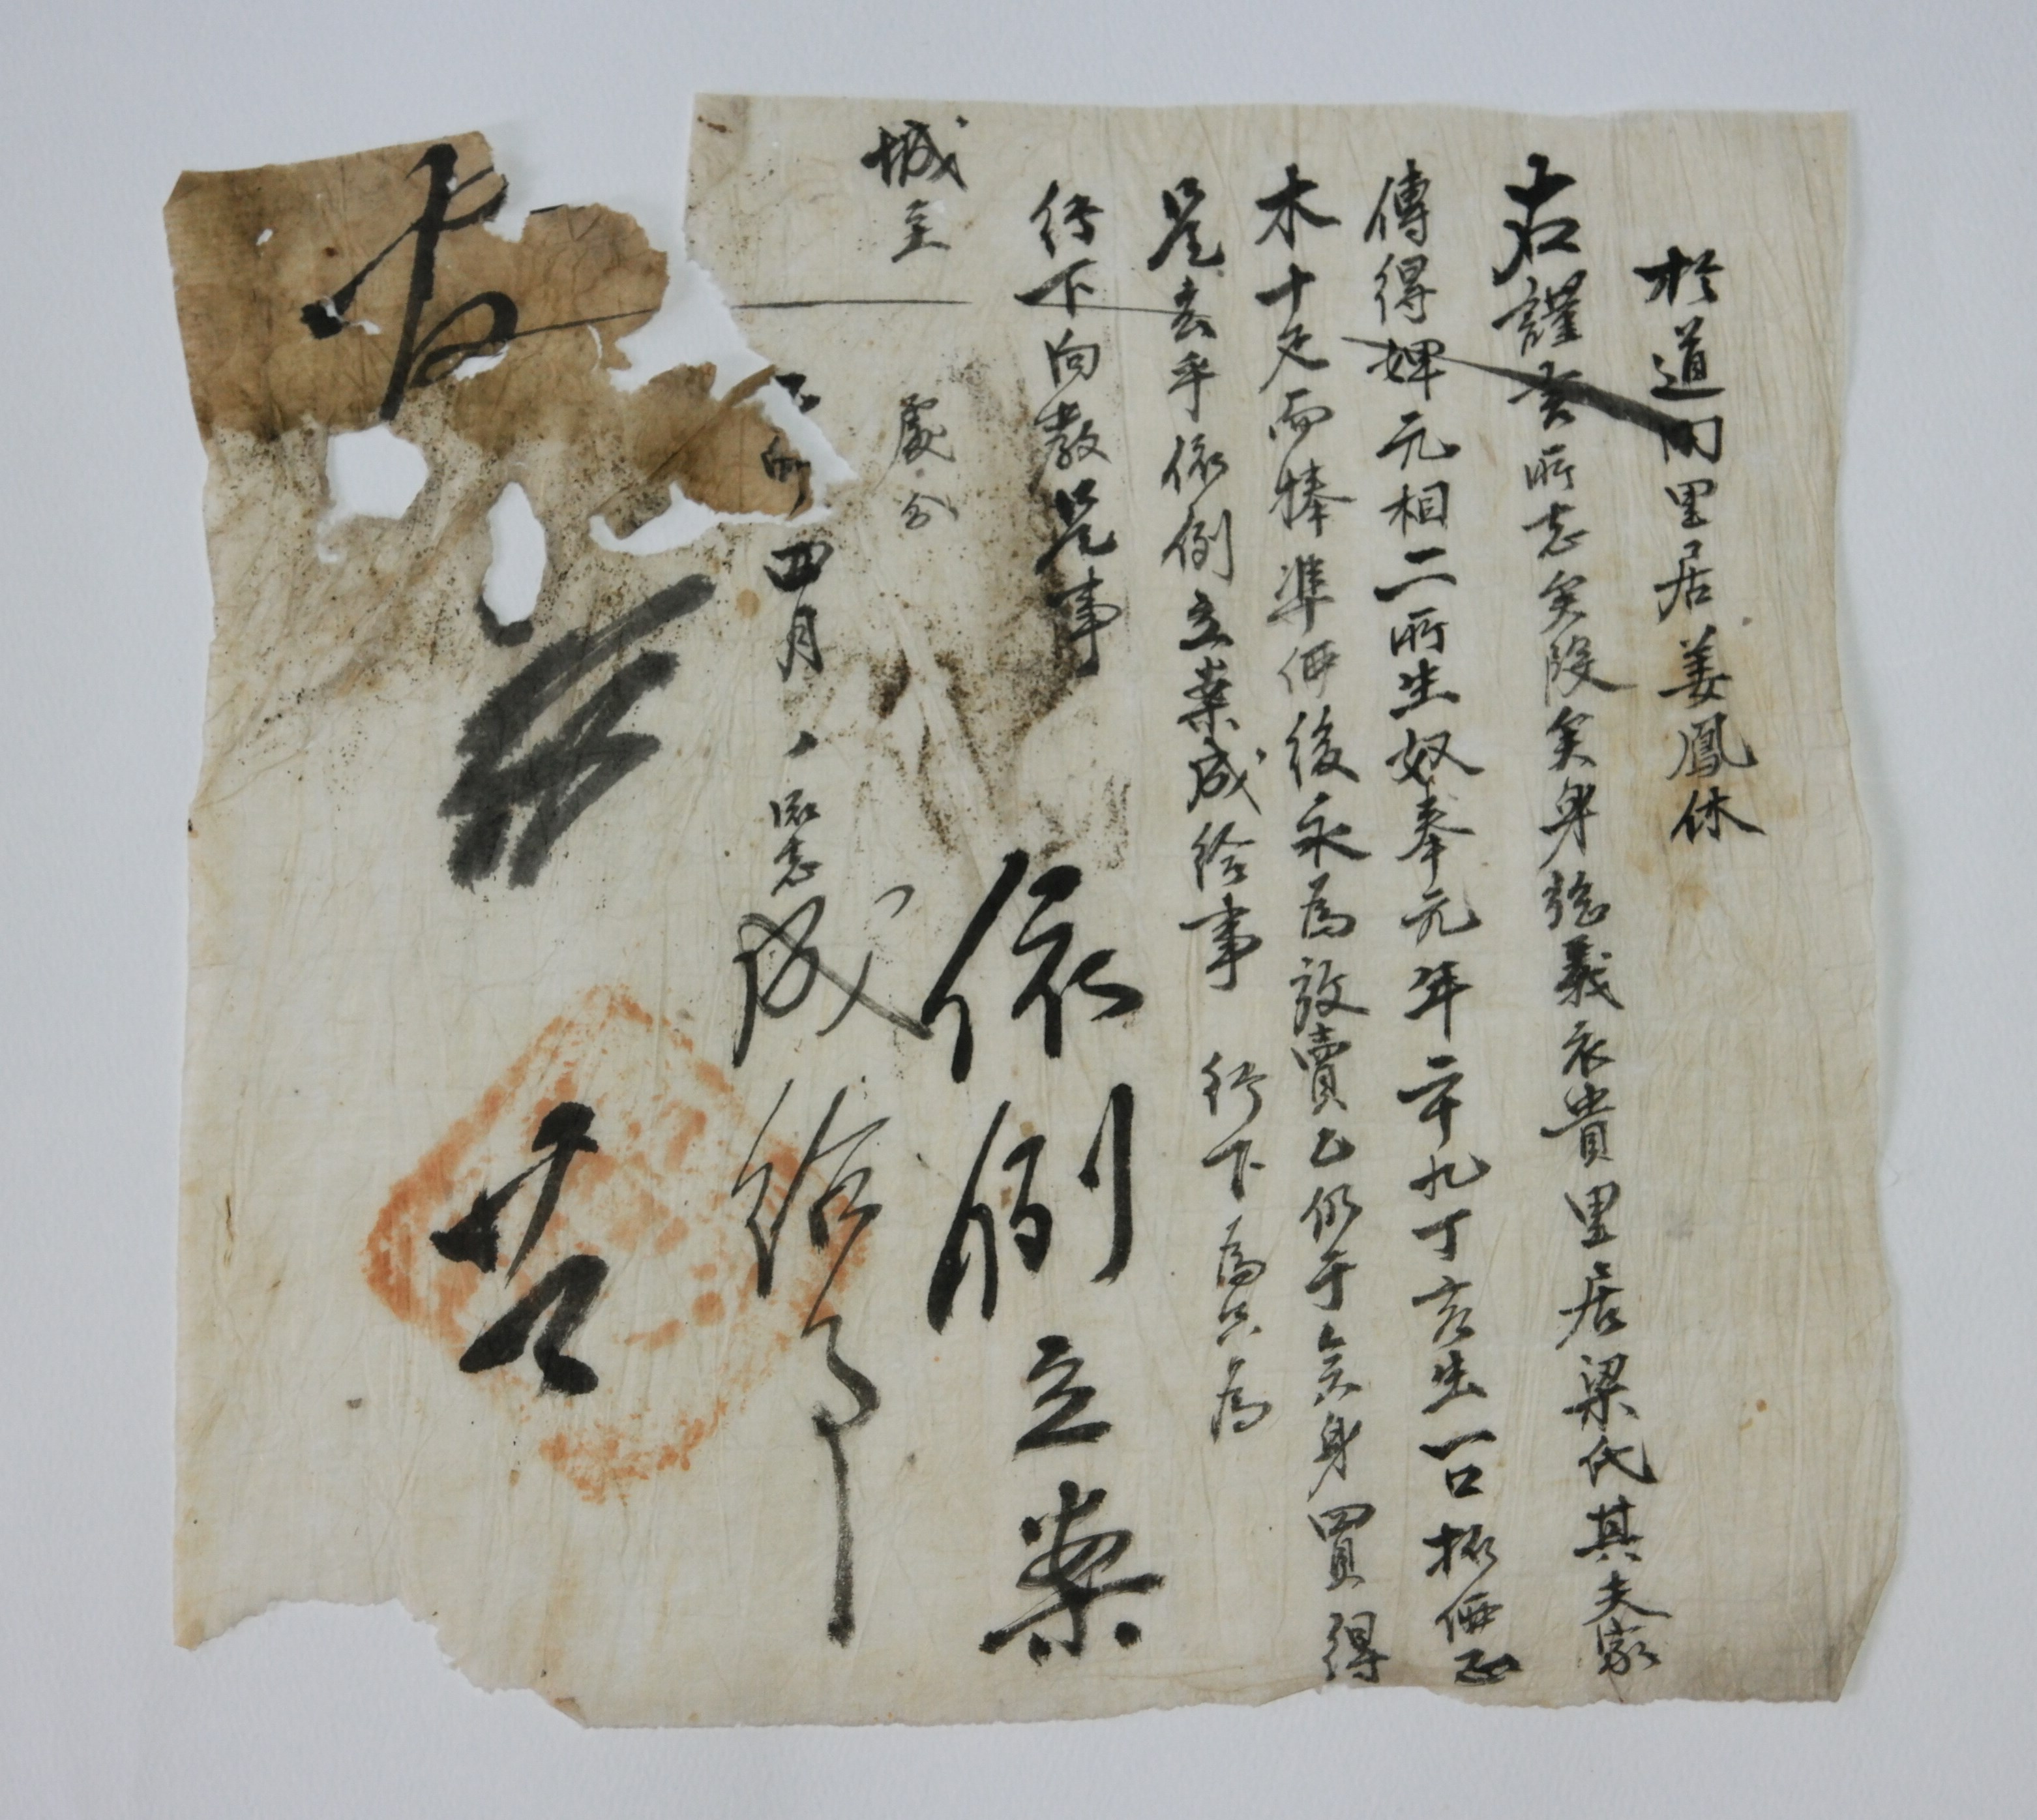 於道內里居姜鳳休
右謹言所志矣段矣身䏻義衣貴里居梁氏其夫家
傳得婢元相二所生奴奉元年二十九丁亥生一口折価正
木十疋而捧準価後永爲放賣乙仍于矣身買得
是去乎依例立案成給事 行下爲只爲
行下向敎是事
城主 處分
四月 日所志
依例立案
成給印